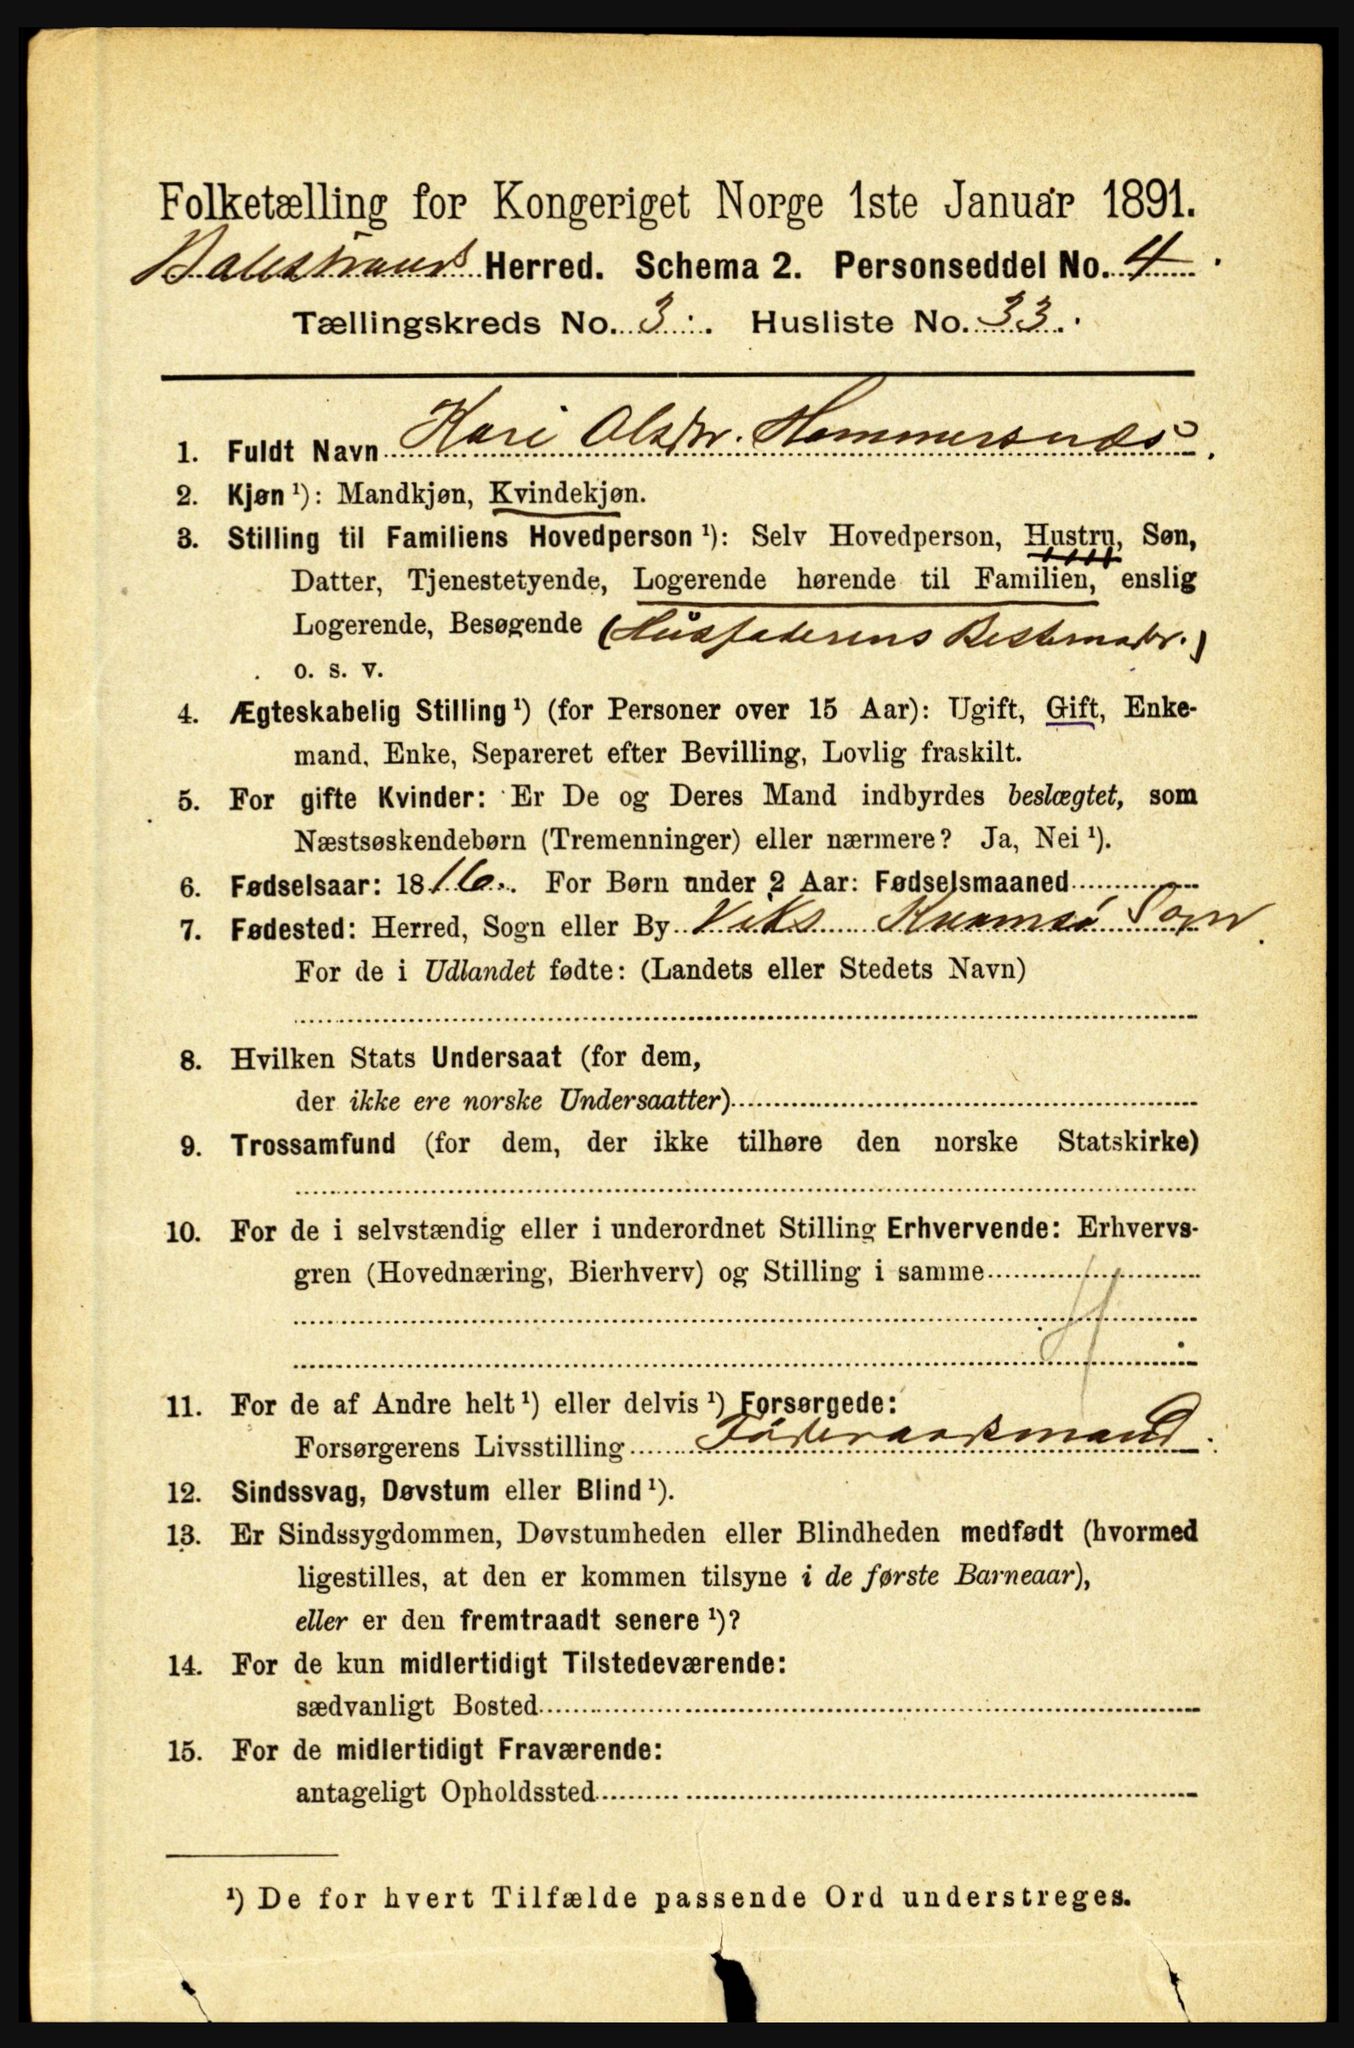 Folketælling for Kongeriget Norge 1ste Januar 1891.
Balestrands Herred. Schema 2. Personseddel No. 4.
Tællingskreds No. 3. Husliste No. 33.
1. Fuldt Navn Kari Olsdtr. Hammersnæs.
2. Kjøn ¹): Mandkjøn, Kvindekjøn.
3. Stilling til Familiens Hovedperson ¹): Selv Hovedperson, Hustru, Søn,
Datter, Tjenestetyende, Logerende hørende til Familien, enslig
Logerende, Besøgende (Husfaderens Bestemoder.)
o. s. v.
4. Ægteskabelig Stilling ¹) (for Personer over 15 Aar): Ugift, Gift, Enke-
mand, Enke, Separeret efter Bevilling, Lovlig fraskilt.
5. For gifte Kvinder: Er De og Deres Mand indbyrdes beslægtet, som
Næstsøskendebørn (Tremenninger) eller nærmere? Ja, Nei ¹).
6. Fødselsaar: 1816. For Børn under 2 Aar: Fødselsmaaned
7. Fødested: Herred, Sogn eller By Viks Kvamsø Sogn.
For de i Udlandet fødte: (Landets eller Stedets Navn)
8. Hvilken Stats Undersaat (for dem,
der ikke ere norske Undersaatter)
9. Trossamfund (for dem, der ikke tilhøre den norske Statskirke)
10. For de i selvstændig eller i underordnet Stilling Erhvervende: Erhvervs-
gren (Hovednæring, Bierhverv) og Stilling i samme
H
11. For de af Andre helt ¹) eller delvis ¹) Forsørgede:
Forsørgerens Livsstilling Føderaadsmand.
12. Sindssvag, Døvstum eller Blind ¹).
13. Er Sindssygdommen, Døvstumheden eller Blindheden medfødt (hvormed
ligestilles, at den er kommen tilsyne i de første Barneaar),
eller er den fremtraadt senere ¹)?
14. For de kun midlertidigt Tilstedeværende:
sædvanligt Bosted
15. For de midlertidigt Fraværende:
antageligt Opholdssted
¹) De for hvert Tilfælde passende Ord understreges.